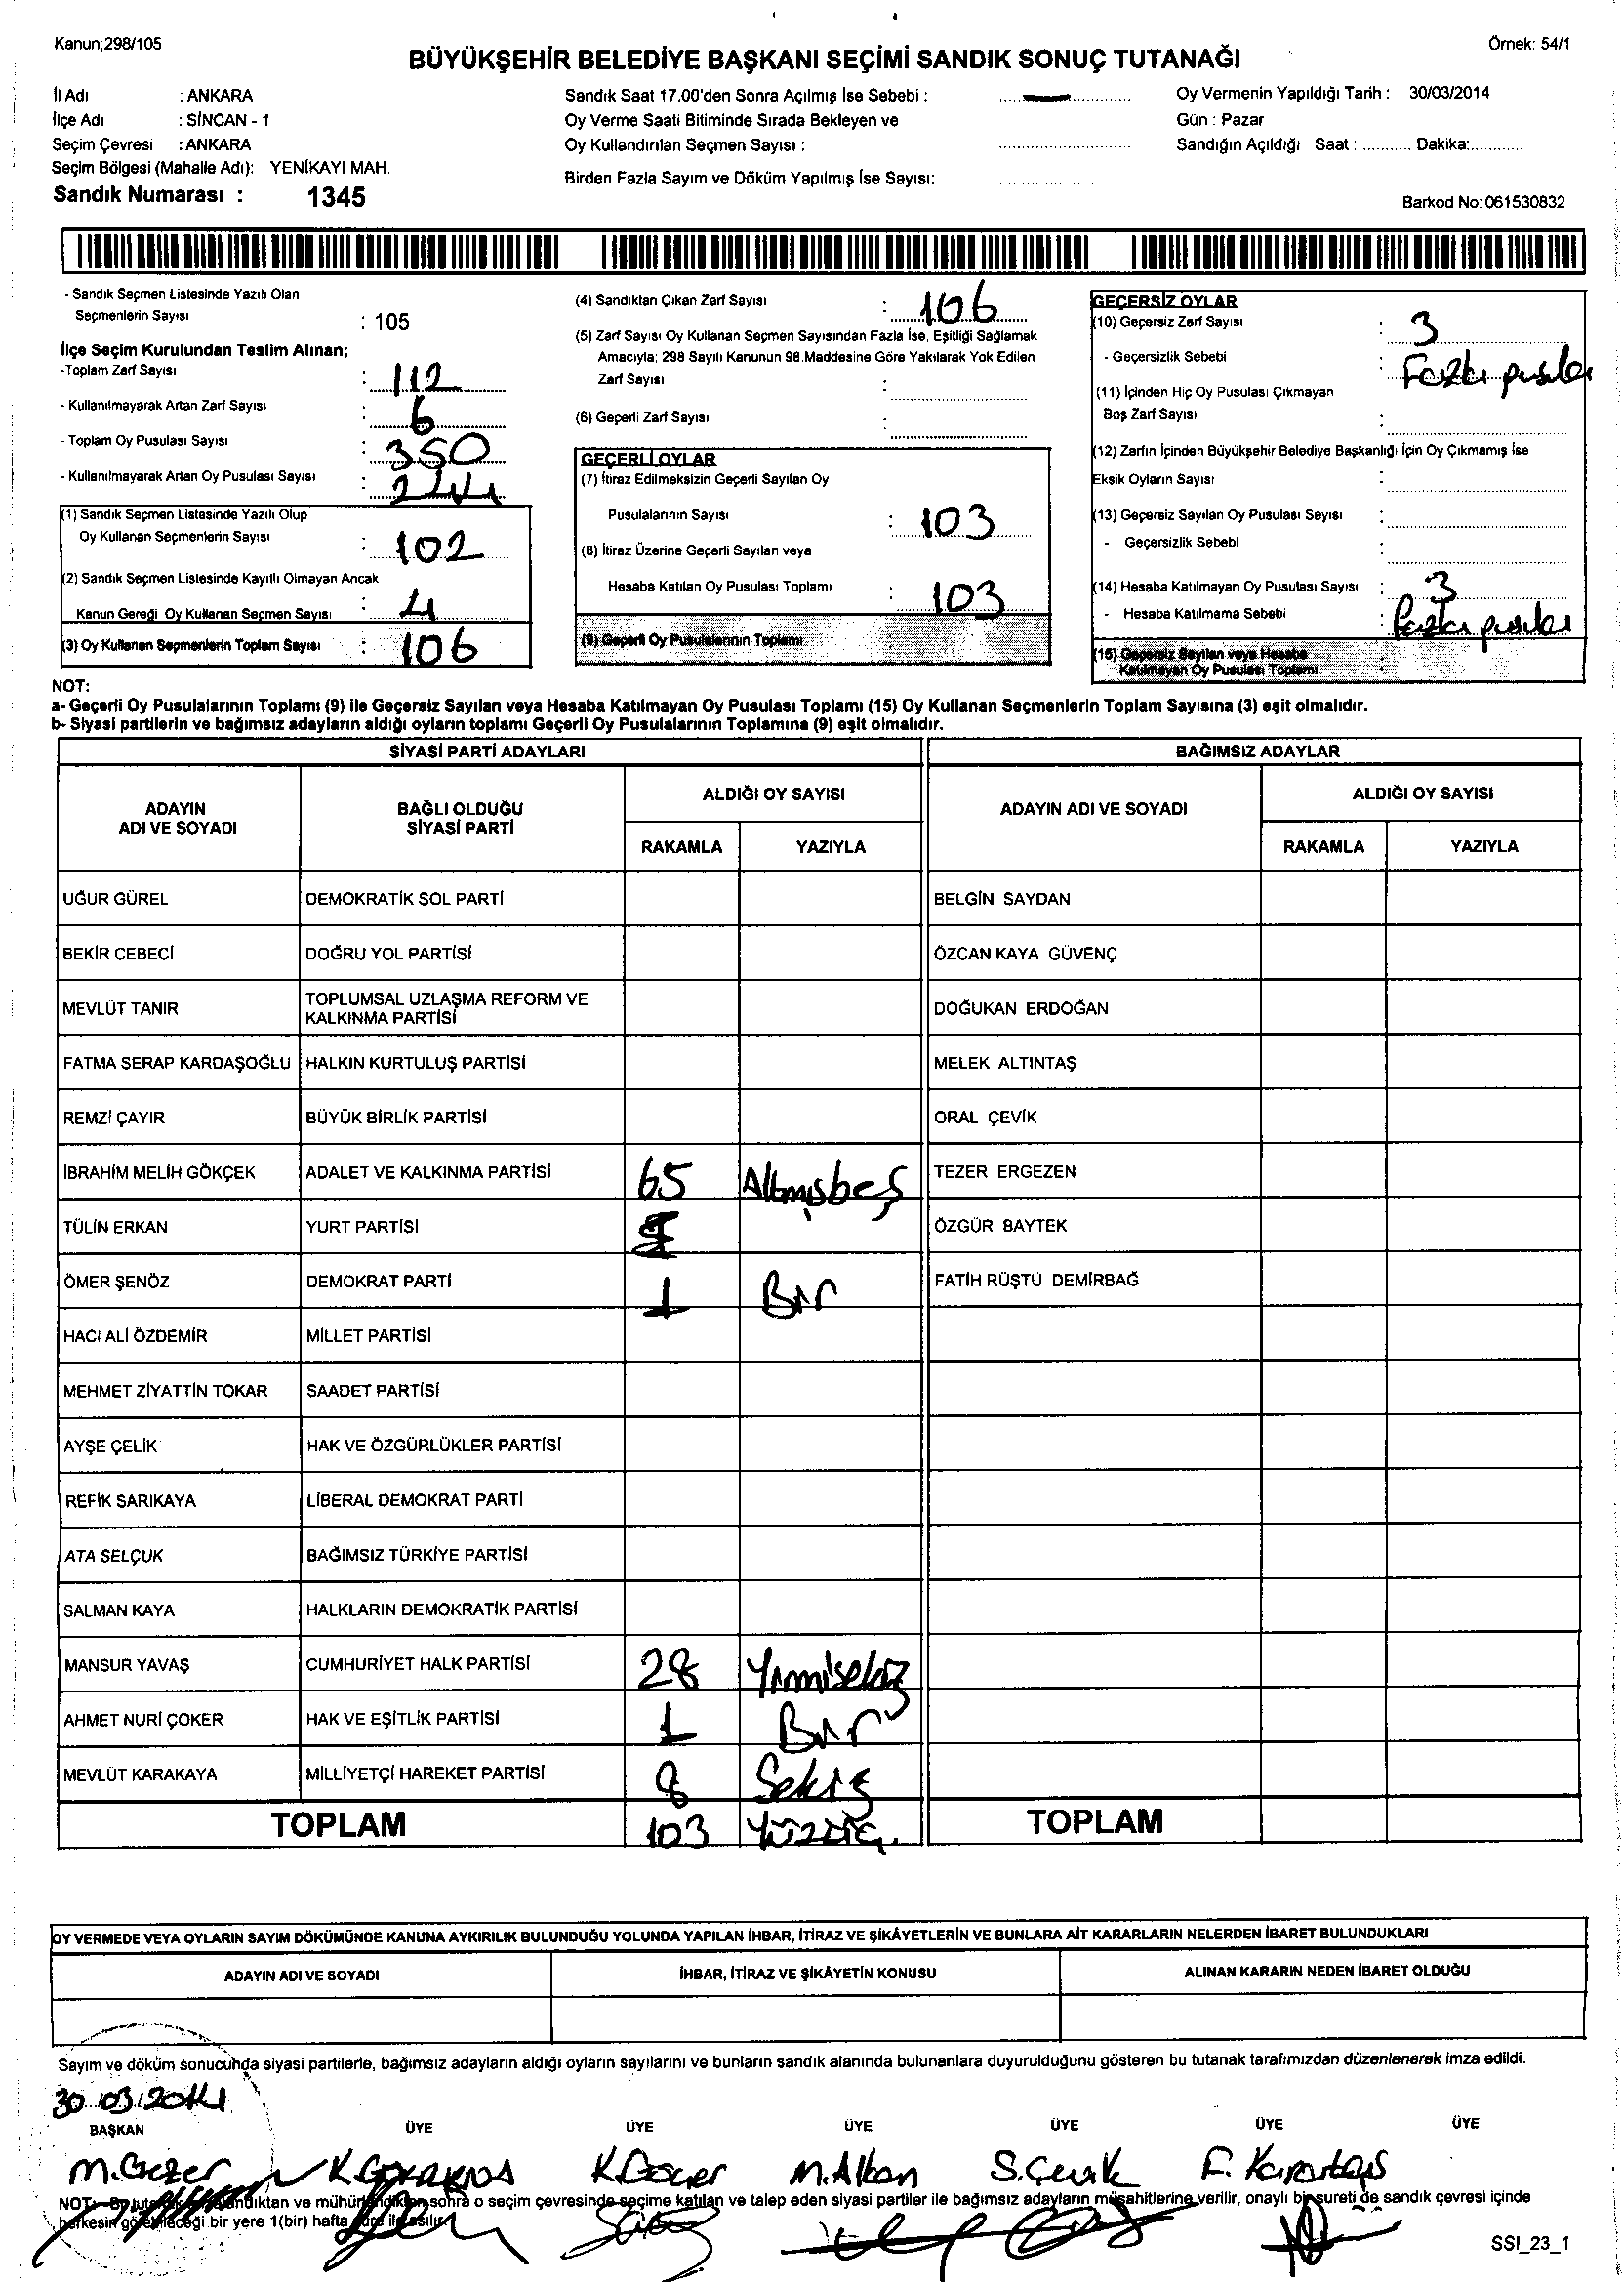 Kanun;298/105
Örnek: 54/1
BÜYÜKŞEHİR BELEDİYE BAŞKANI SEÇİMİ SANDIK SONUÇ TUTANAĞI
İl Adı : ANKARA
İlçe Adı : SİNCAN - 1
Seçim Çevresi : ANKARA
Seçim Bölgesi (Mahalle Adı): YENİKAYI MAH.
Sandık Numarası : 1345
Sandık Saat 17.00'den Sonra Açılmış İse Sebebi :
Oy Verme Saati Bitiminde Sırada Bekleyen ve
Oy Kullandırılan Seçmen Sayısı :
Birden Fazla Sayım ve Döküm Yapılmış İse Sayısı:
Oy Vermenin Yapıldığı Tarih : 30/03/2014
Gün : Pazar
Sandığın Açıldığı Saat :............ Dakika:............
Barkod No: 061530832
- Sandık Seçmen Listesinde Yazılı Olan
Seçmenlerin Sayısı : 105
İlçe Seçim Kurulundan Teslim Alınan;
-Toplam Zarf Sayısı : 112
- Kullanılmayarak Artan Zarf Sayısı : 6
- Toplam Oy Pusulası Sayısı : 350
- Kullanılmayarak Artan Oy Pusulası Sayısı : 244
(1) Sandık Seçmen Listesinde Yazılı Olup
Oy Kullanan Seçmenlerin Sayısı : 102
(2) Sandık Seçmen Listesinde Kayıtlı Olmayan Ancak
Kanun Gereği Oy Kullanan Seçmen Sayısı : 4
(3) Oy Kullanan Seçmenlerin Toplam Sayısı : 106
(4) Sandıktan Çıkan Zarf Sayısı : 106
(5) Zarf Sayısı Oy Kullanan Seçmen Sayısından Fazla İse, Eşitliği Sağlamak
Amacıyla; 298 Sayılı Kanunun 98.Maddesine Göre Yakılarak Yok Edilen
Zarf Sayısı :
(6) Geçerli Zarf Sayısı :
GEÇERLİ OYLAR
(7) İtiraz Edilmeksizin Geçerli Sayılan Oy
Pusulalarının Sayısı : 103
(8) İtiraz Üzerine Geçerli Sayılan veya
Hesaba Katılan Oy Pusulası Toplamı : 103
(9) Geçerli Oy Pusulalarının Toplamı
GEÇERSİZ OYLAR
(10) Geçersiz Zarf Sayısı : 3
- Geçersizlik Sebebi : Fazla pusula
(11) İçinden Hiç Oy Pusulası Çıkmayan
Boş Zarf Sayısı :
(12) Zarfın İçinden Büyükşehir Belediye Başkanlığı İçin Oy Çıkmamış İse
Eksik Oyların Sayısı :
(13) Geçersiz Sayılan Oy Pusulası Sayısı :
- Geçersizlik Sebebi :
(14) Hesaba Katılmayan Oy Pusulası Sayısı : 3
- Hesaba Katılmama Sebebi : Fazla pusula
(15) Geçersiz Sayılan veya Hesaba
Katılmayan Oy Pusulası Toplamı
NOT:
a- Geçerli Oy Pusulalarının Toplamı (9) ile Geçersiz Sayılan veya Hesaba Katılmayan Oy Pusulası Toplamı (15) Oy Kullanan Seçmenlerin Toplam Sayısına (3) eşit olmalıdır.
b- Siyasi partilerin ve bağımsız adayların aldığı oyların toplamı Geçerli Oy Pusulalarının Toplamına (9) eşit olmalıdır.
SİYASİ PARTİ ADAYLARI
BAĞIMSIZ ADAYLAR
ADAYIN
ADI VE SOYADI
BAĞLI OLDUĞU
SİYASİ PARTİ
ALDIĞI OY SAYISI
RAKAMLA YAZIYLA
ADAYIN ADI VE SOYADI
ALDIĞI OY SAYISI
RAKAMLA YAZIYLA
UĞUR GÜREL DEMOKRATİK SOL PARTİ BELGİN SAYDAN
BEKİR CEBECİ DOĞRU YOL PARTİSİ ÖZCAN KAYA GÜVENÇ
MEVLÜT TANIR TOPLUMSAL UZLAŞMA REFORM VE
KALKINMA PARTİSİ DOĞUKAN ERDOĞAN
FATMA SERAP KARDAŞOĞLU HALKIN KURTULUŞ PARTİSİ MELEK ALTINTAŞ
REMZİ ÇAYIR BÜYÜK BİRLİK PARTİSİ ORAL ÇEVİK
İBRAHİM MELİH GÖKÇEK ADALET VE KALKINMA PARTİSİ 65 Altmışbeş TEZER ERGEZEN
TÜLİN ERKAN YURT PARTİSİ ÖZGÜR BAYTEK
ÖMER ŞENÖZ DEMOKRAT PARTİ 1 Bir FATİH RÜŞTÜ DEMİRBAĞ
HACI ALİ ÖZDEMİR MİLLET PARTİSİ
MEHMET ZİYATTİN TOKAR SAADET PARTİSİ
AYŞE ÇELİK HAK VE ÖZGÜRLÜKLER PARTİSİ
REFİK SARIKAYA LİBERAL DEMOKRAT PARTİ
ATA SELÇUK BAĞIMSIZ TÜRKİYE PARTİSİ
SALMAN KAYA HALKLARIN DEMOKRATİK PARTİSİ
MANSUR YAVAŞ CUMHURİYET HALK PARTİSİ 28 Yirmisekiz
AHMET NURİ ÇOKER HAK VE EŞİTLİK PARTİSİ 1 Bir
MEVLÜT KARAKAYA MİLLİYETÇİ HAREKET PARTİSİ 8 Sekiz
TOPLAM 103 Yüzüç. TOPLAM
OY VERMEDE VEYA OYLARIN SAYIM DÖKÜMÜNDE KANUNA AYKIRILIK BULUNDUĞU YOLUNDA YAPILAN İHBAR, İTİRAZ VE ŞİKÂYETLERİN VE BUNLARA AİT KARARLARIN NELERDEN İBARET BULUNDUKLARI
ADAYIN ADI VE SOYADI İHBAR, İTİRAZ VE ŞİKÂYETİN KONUSU ALINAN KARARIN NEDEN İBARET OLDUĞU
Sayım ve döküm sonucunda siyasi partilerle, bağımsız adayların aldığı oyların sayılarını ve bunların sandık alanında bulunanlara duyurulduğunu gösteren bu tutanak tarafımızdan düzenlenerek imza edildi.
30.03.2014
BAŞKAN ÜYE ÜYE ÜYE ÜYE ÜYE ÜYE
M.Gezer M.Alkan S.Çevik F. Karataş
NOT: sonra o seçim çevresinde seçime katılan ve talep eden siyasi partiler ile bağımsız adayların müşahitlerine verilir, onaylı bir sureti de sandık çevresi içinde
bir yere 1(bir) hafta
SSI_23_1